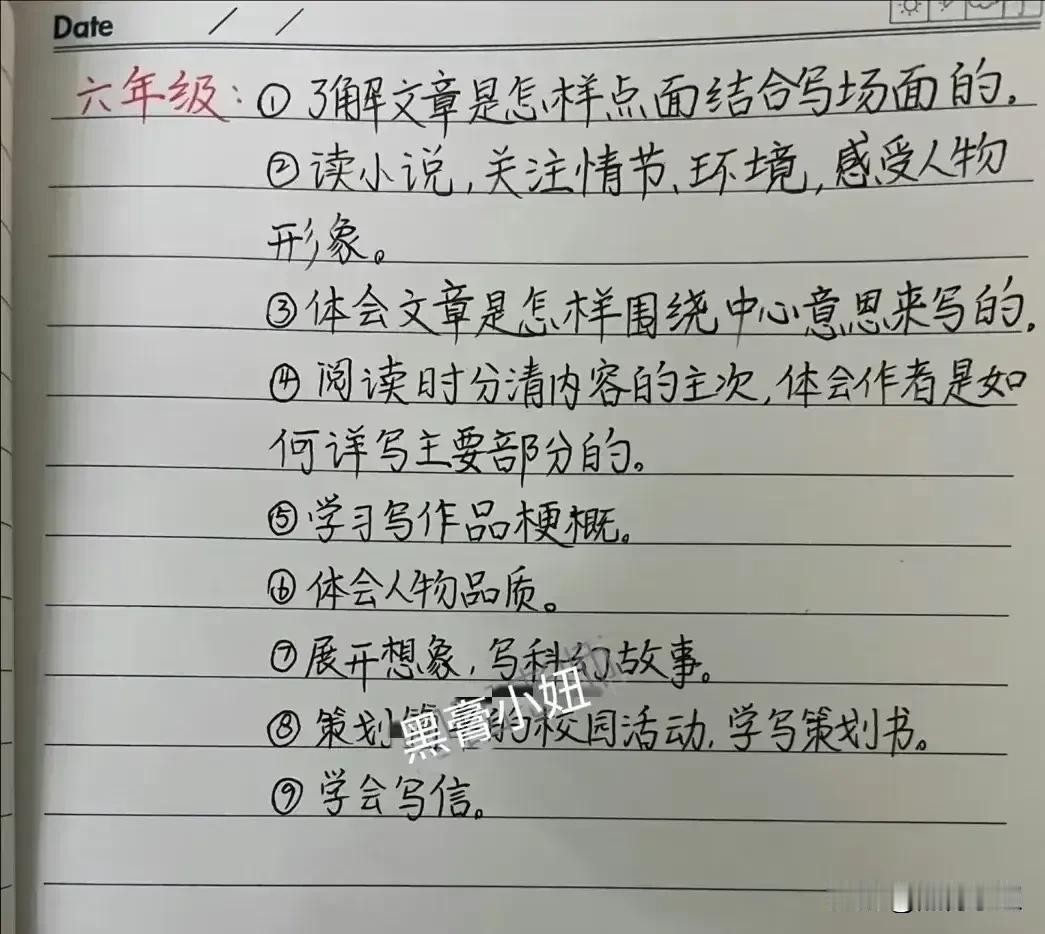 Date / /
六年级：①了解文章是怎样点面结合写场面的.
②读小说,关注情节、环境,感受人物
形象。
③体会文章是怎样围绕中心意思来写的.
④阅读时分清内容的主次,体会作者是如
何详写主要部分的。
⑤学习写作品梗概。
⑥体会人物品质。
⑦展开想象,写科幻故事。
⑧策划简单的校园活动,学写策划书。
⑨学会写信。
黑膏小妞